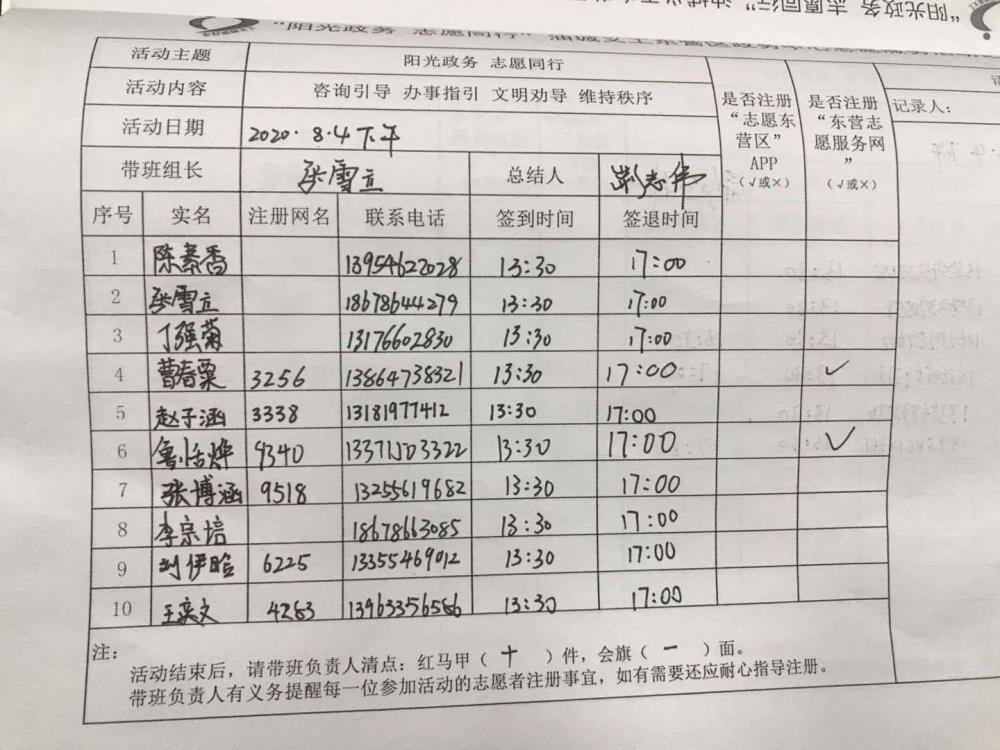 "阳光政务 志愿同行"
活动主题 阳光政务 志愿同行
活动内容 咨询引导 办事指引 文明劝导 维持秩序
活动日期 2020.8.4下午
带班组长 张雪立 总结人 刘志伟
是否注册“志愿东营区”APP（√或×）
是否注册“东营志愿服务网”（√或×）
记录人：
序号 实名 注册网名 联系电话 签到时间 签退时间
1 陈秦香 13954622028 13:30 17:00
2 张雪立 18678644279 13:30 17:00
3 丁强菊 13176602830 13:30 17:00
4 曹春粟 3256 13864738321 13:30 17:00 ✓
5 赵子涵 3338 13181977412 13:30 17:00
6 鲁恬烨 9340 13371503322 13:30 17:00 ✓
7 张博涵 9518 13255619682 13:30 17:00
8 李宗培 18678663085 13:30 17:00
9 刘伊晗 6225 13355469012 13:30 17:00
10 王奕文 4283 13963356586 13:30 17:00
注：
活动结束后，请带班负责人清点：红马甲（ 十 ）件，会旗（ 一 ）面。
带班负责人有义务提醒每一位参加活动的志愿者注册事宜，如有需要还应耐心指导注册。